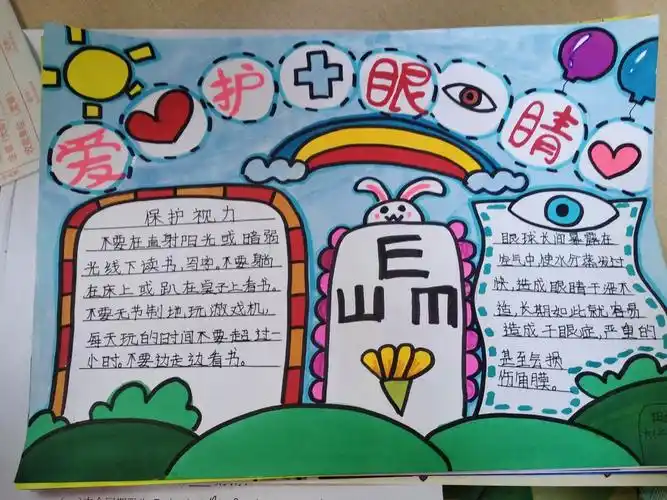 爱护眼睛
保护视力
不要在直射阳光或暗弱
光线下读书,写字。不要躺
在床上或趴在桌子上看书。
不要无节制地玩游戏机,
每天玩的时间不要超过一
小时。不要边走边看书。
E
眼球长间暴露在
空气中,使水分蒸发过
快,造成眼睛干涩不
造,长期如此就容易
造成干眼症,严重的
甚至会损
伤角膜。